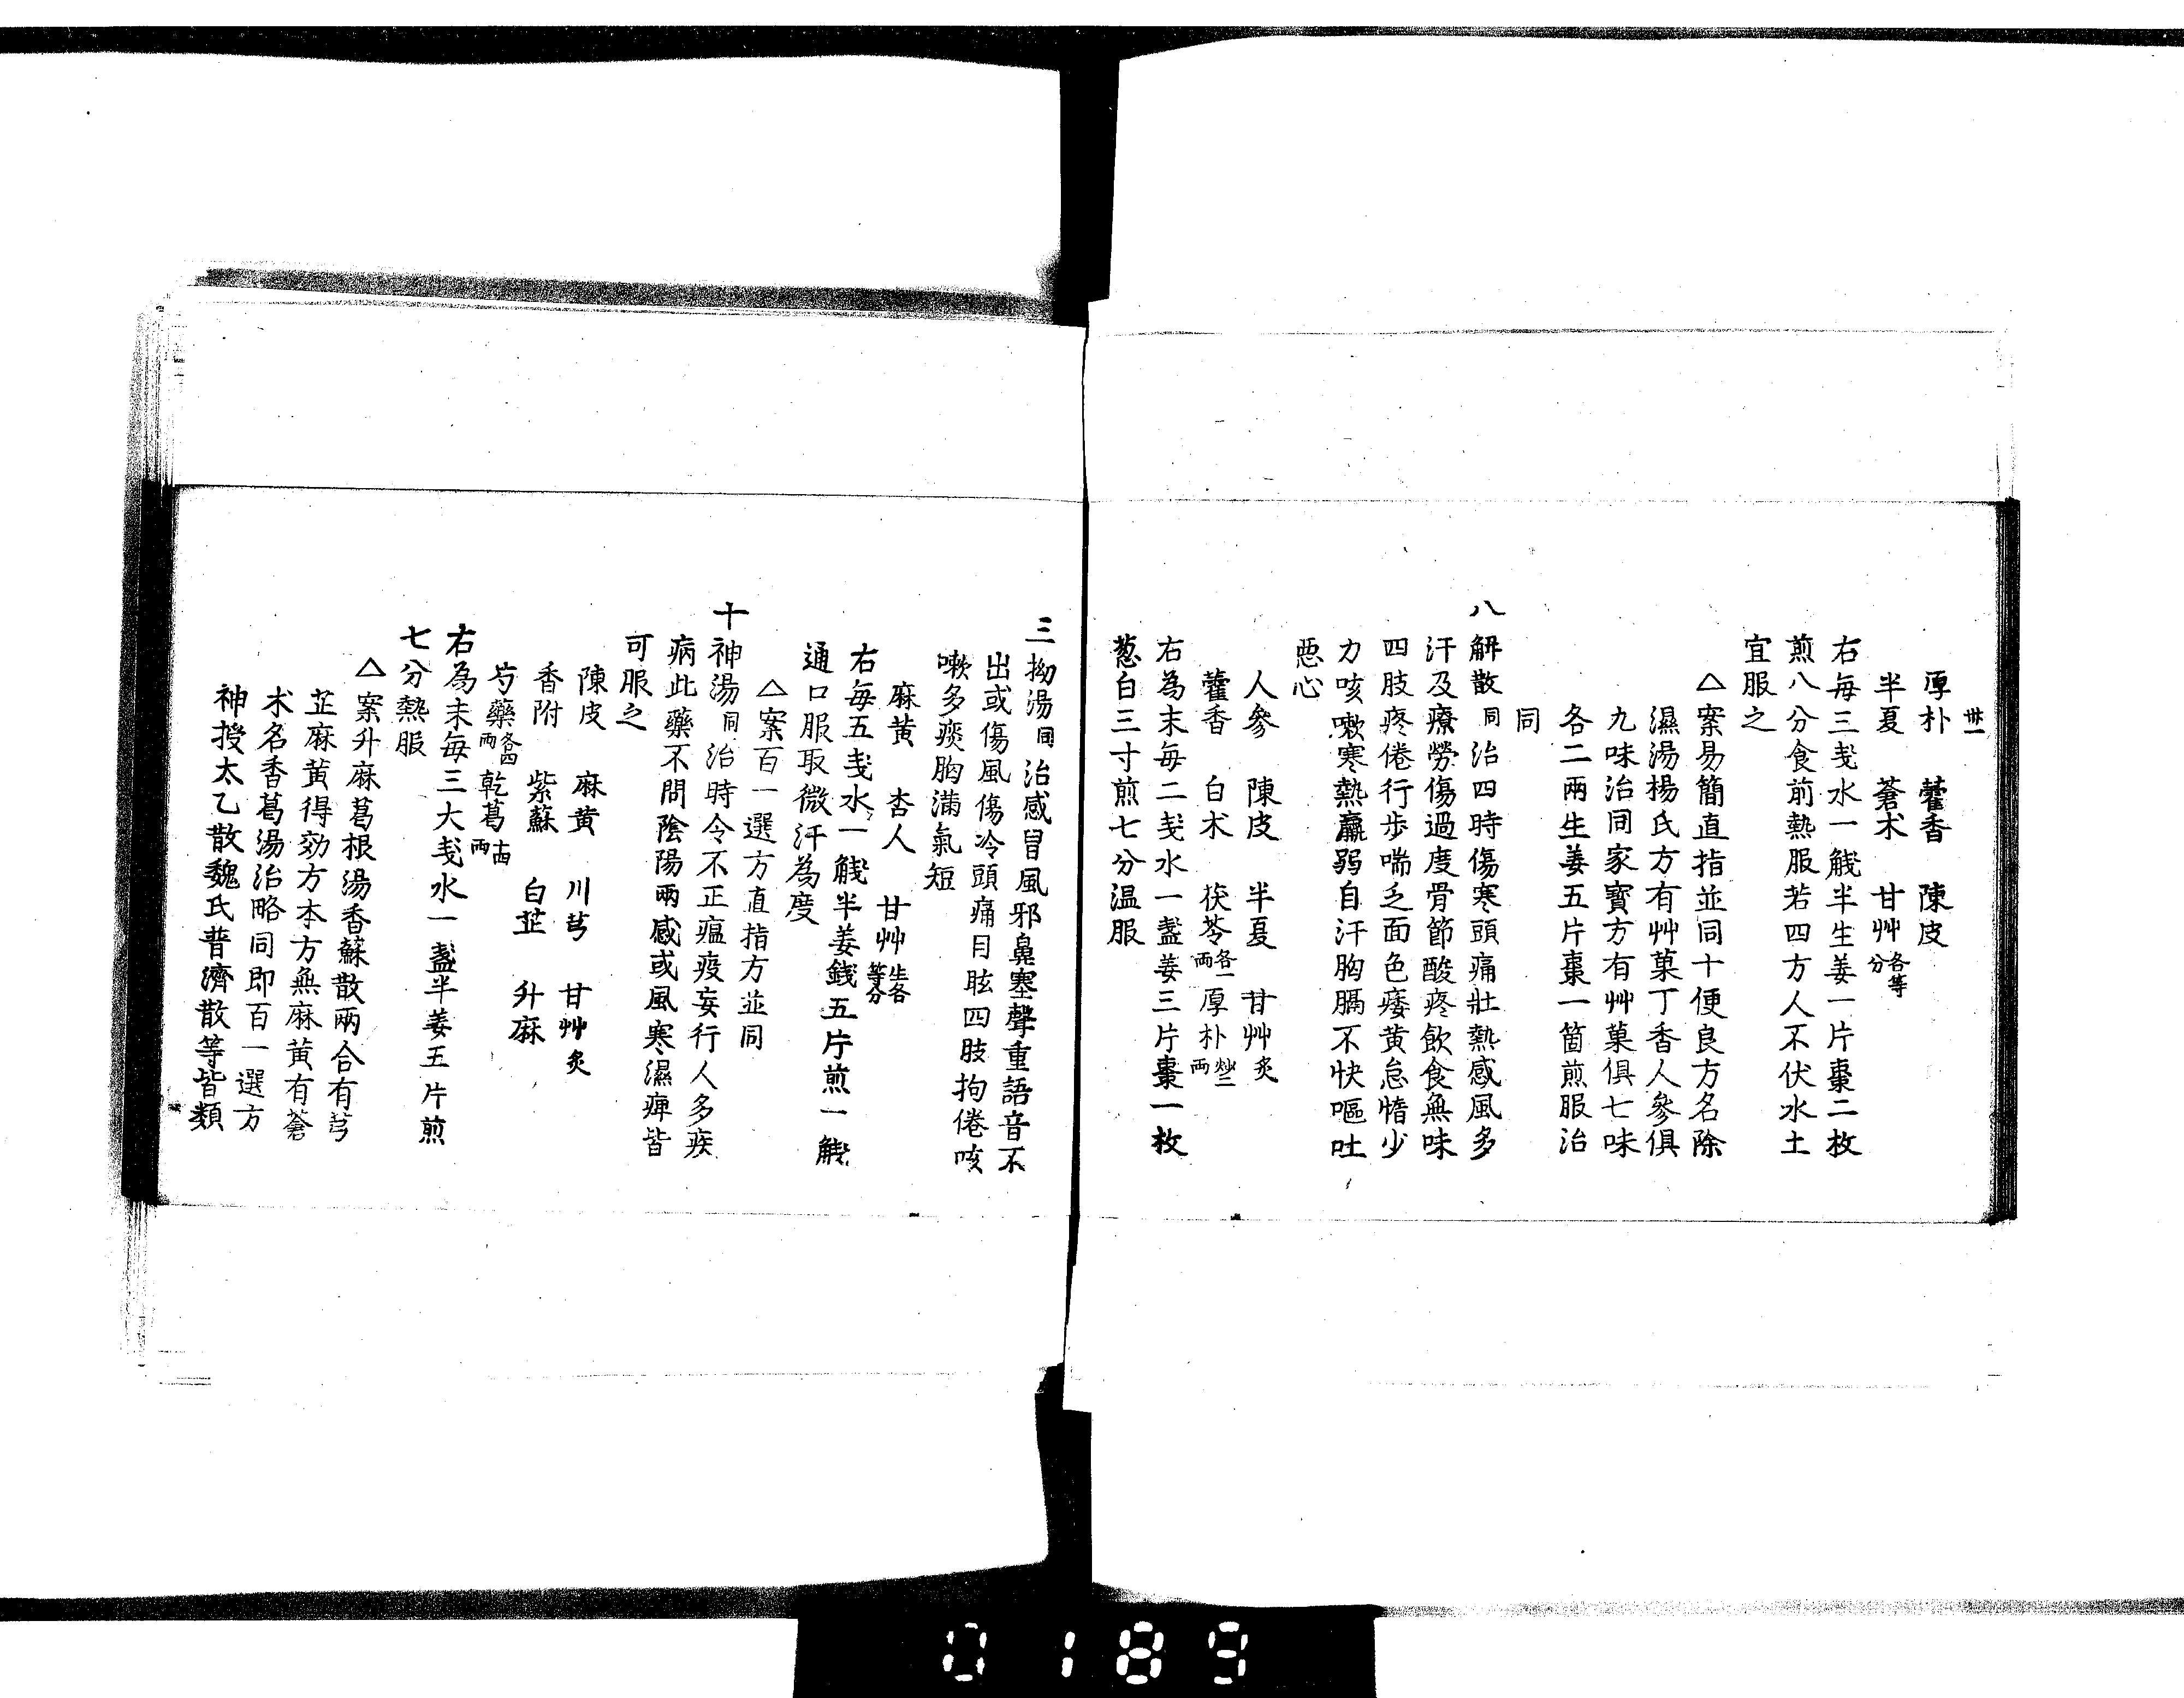 卅一
厚朴　藿香　陳皮
半夏　蒼朮　甘艸各等分
右每三戔水一觥半生姜一片棗二枚
煎八分食前熱服若四方人不伏水土
宜服之
△案易簡直指並同十便良方名除
濕湯楊氏方有艸菓丁香人參俱
九味治同家寶方有艸菓俱七味
各二兩生姜五片棗一箇煎服治
同
八解散同治四時傷寒頭痛壯熱感風多
汗及療勞傷過度骨節酸疼飲食無味
四肢疼倦行步喘乏面色痿黃怠惰少
力咳嗽寒熱羸弱自汗胸膈不快嘔吐
惡心
人參　陳皮　半夏　甘艸炙
藿香　白朮　茯苓各一兩厚朴炒二兩
右為末每二戔水一盞姜三片棗一枚
葱白三寸煎七分温服
三拗湯同治感冒風邪鼻塞聲重語音不
出或傷風傷冷頭痛目眩四肢拘倦咳
嗽多痰胸滿氣短
麻黄　杏人　甘艸生各等分
右每五戔水一觥半姜錢五片煎一觥
通口服取微汗為度
△案百一選方直指方並同
十神湯同治時令不正瘟疫妄行人多疾
病此藥不問陰陽兩感或風寒濕痺皆
可服之
陳皮　麻黄　川芎　甘艸炙
香附　紫蘇　白芷　升麻
芍藥各四兩乾葛十四兩
右為末每三大戔水一盞半姜五片煎
七分熱服
△案升麻葛根湯香蘇散兩合有芎
芷麻黄得効方本方無麻黄有蒼
朮名香葛湯治略同即百一選方
神授太乙散魏氏普濟散等皆類
0189